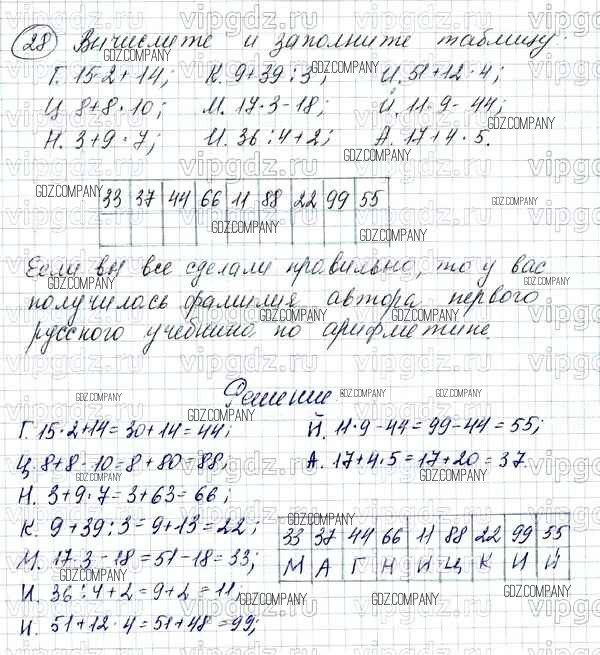 28 Вычислите и заполните таблицу:
Г. 15·2+14; К. 9+39:3; И. 51+12·4;
Ц. 8+8·10; М. 17·3-18; Й. 11·9-44;
Н. 3+9·7; И. 36:4+2; А. 17+4·5.
33 37 44 66 11 88 22 99 55
Если вы все сделали правильно, то у вас
получилась фамилия автора первого
русского учебника по арифметике.
Решение
Г. 15·2+14=30+14=44;
Ц. 8+8·10=8+80=88;
Н. 3+9·7=3+63=66;
К. 9+39:3=9+13=22;
М. 17·3-18=51-18=33;
И. 36:4+2=9+2=11;
И. 51+12·4=51+48=99;
Й. 11·9-44=99-44=55;
А. 17+4·5=17+20=37.
33 37 44 66 11 88 22 99 55
М А Г Н И Ц К И Й
GDZ.COMPANY
vipgdz.ru